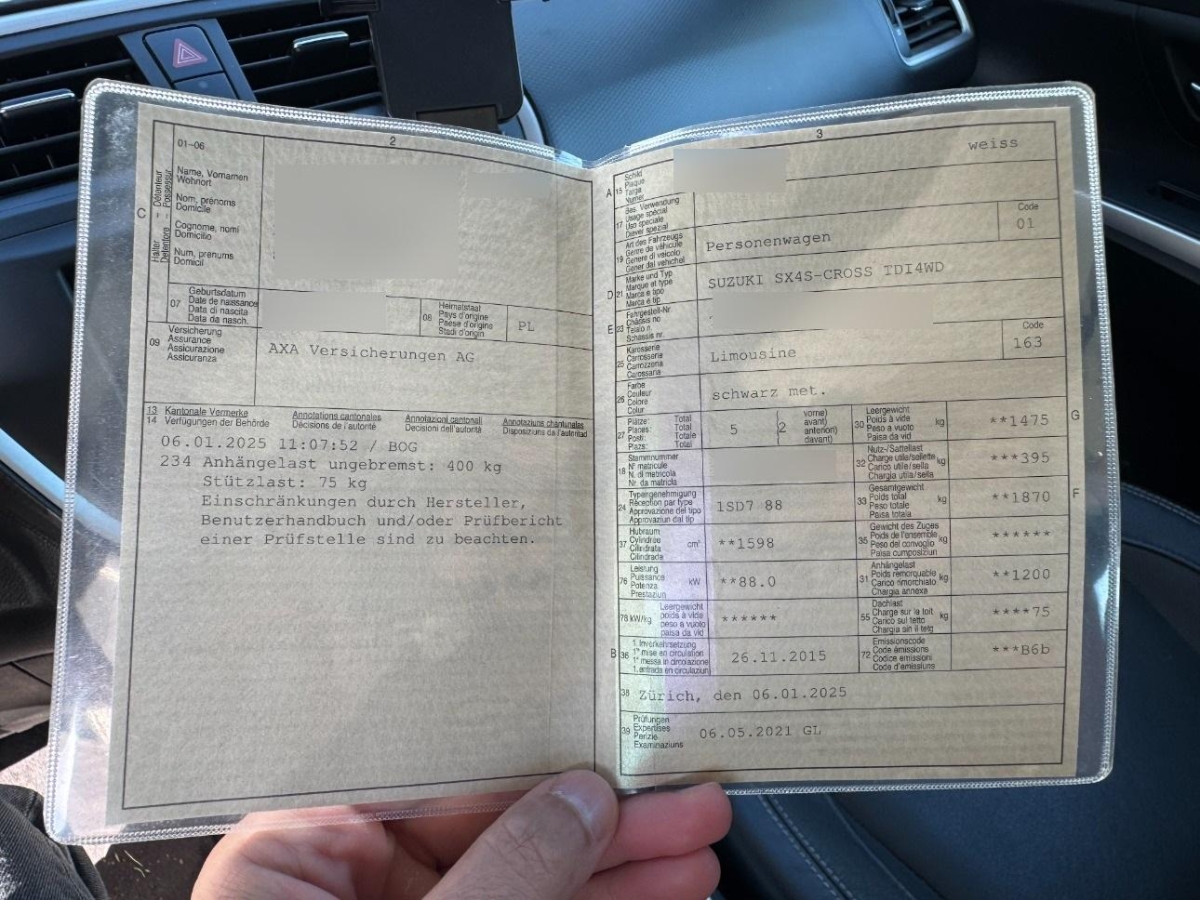 2
01-06
Name, Vornamen
Wohnort
Nom, prénoms
Domicile
Cognome, nomi
Domicilio
Num, prenums
Domicil
C
07
Geburtsdatum
Date de naissance
Data di nascita
Data da nasch.
08
Heimatstaat
Pays d'origine
Paese d'origine
Stadi d'origin
PL
09
Versicherung
Assurance
Assicurazione
Assicuranza
AXA Versicherungen AG
13
14
Kantonale Vermerke
Verfügungen der Behörde
Annotations cantonales
Décisions de l'autorité
Annotazioni cantonali
Decisioni dell'autorità
Annotaziuns chantunalas
Disposiziuns da l'autoritad
06.01.2025 11:07:52 / BOG
234 Anhängelast ungebremst: 400 kg
Stützlast: 75 kg
Einschränkungen durch Hersteller,
Benutzerhandbuch und/oder Prüfbericht
einer Prüfstelle sind zu beachten.
3
A
15
Schild
Plaque
Targa
Numer
weiss
17
Bes. Verwendung
Usage spécial
Uso speciale
Diever spezial
19
Art des Fahrzeugs
Genre de véhicule
Genere di veicolo
Gener dal vehichel
Personenwagen
Code
01
D
21
Marke und Typ
Marque et type
Marca e tipo
Marca e tip
SUZUKI SX4S-CROSS TDI4WD
E
23
Fahrgestell-Nr.
Châssis no
Telaio n.
Schassis nr.
25
Karosserie
Carrosserie
Carrozzeria
Carossaria
Limousine
Code
163
26
Farbe
Couleur
Colore
Colur
schwarz met.
27
Plätze: Total
Places: Total
Posti: Totale
Plazs: Total
5
(2
vorne)
avant)
anteriori)
davant)
30
Leergewicht
Poids à vide
Peso a vuoto
Paisa da vid
kg
**1475
G
18
Stammnummer
N° matricule
N. di matricola
Nr. da matricla
32
Nutz-/Sattellast
Charge utile/sellette
Carico utile/sella
Chargia utila/sella
kg
***395
24
Typengenehmigung
Réception par type
Approvazione del tipo
Approvaziun dal tip
1SD7 88
33
Gesamtgewicht
Poids total
Peso totale
Paisa totala
kg
**1870
F
37
Hubraum
Cylindrée
Cilindrata
Cilindrada
cm³
**1598
35
Gewicht des Zuges
Poids de l'ensemble
Peso del convoglio
Paisa cumposiziun
kg
******
76
Leistung
Puissance
Potenza
Prestaziun
kW
**88.0
31
Anhängelast
Poids remorquable
Carico rimorchiato
Chargia annexa
kg
**1200
78 kW/kg
Leergewicht
poids à vide
peso a vuoto
paisa da vid
******
55
Dachlast
Charge sur le toit
Carico sul tetto
Chargia sin il tetg
kg
****75
B
36
1. Inverkehrsetzung
1re mise en circulation
1a messa in circolazione
1. entrada en circulaziun
26.11.2015
72
Emissionscode
Code émissions
Codice emissioni
Code d'emissiuns
***B6b
38
Zürich, den 06.01.2025
39
Prüfungen
Expertises
Perizie
Examinaziuns
06.05.2021 GL